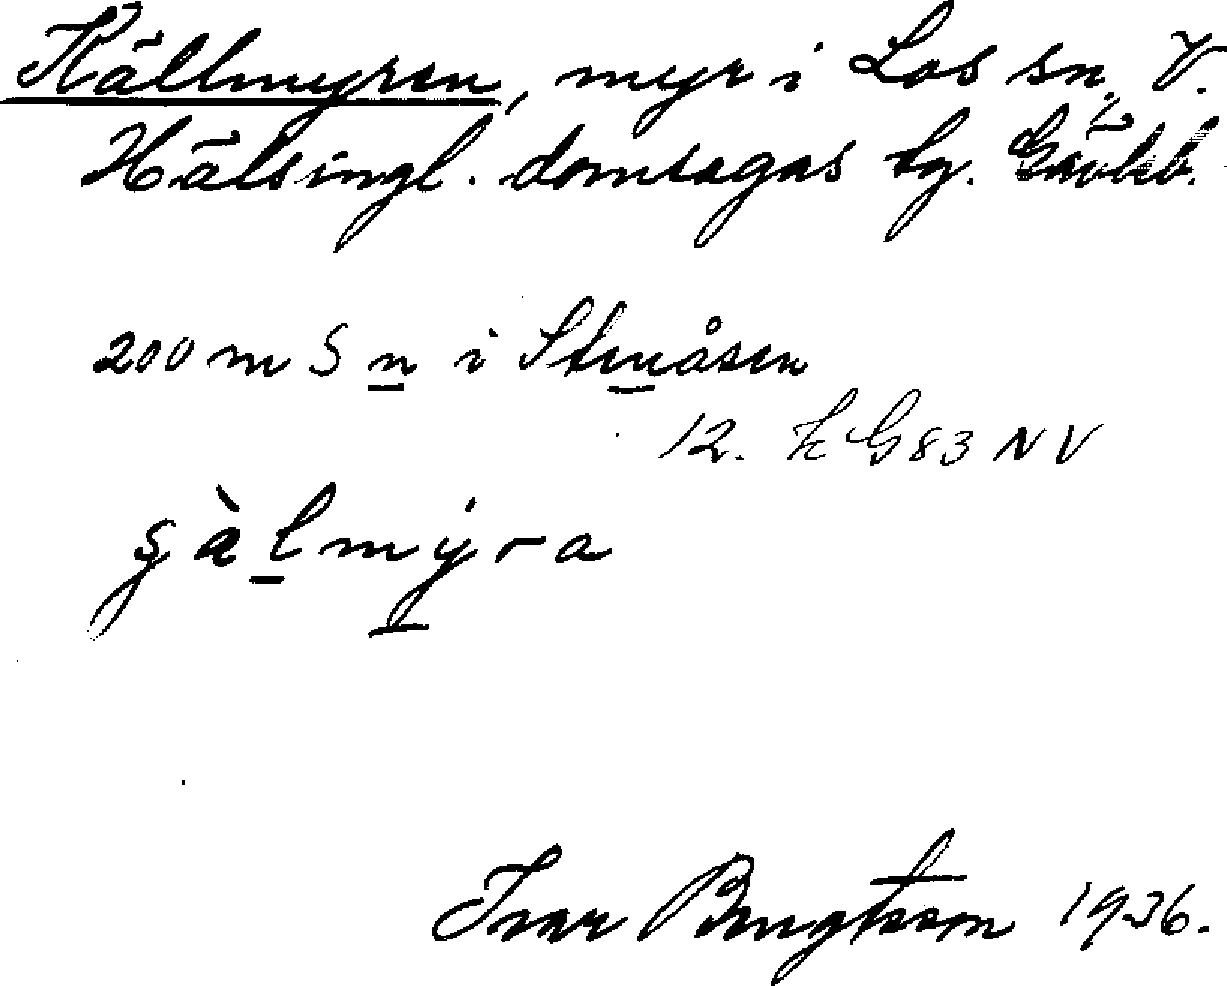 Källmyren, myr i Los sn, V.
Hälsingl. domsagas tg. Gävleb.
200 m S n i Stenåsen
12. K G83 NV
gàlmýra
Ivar Bengtsson 1936.